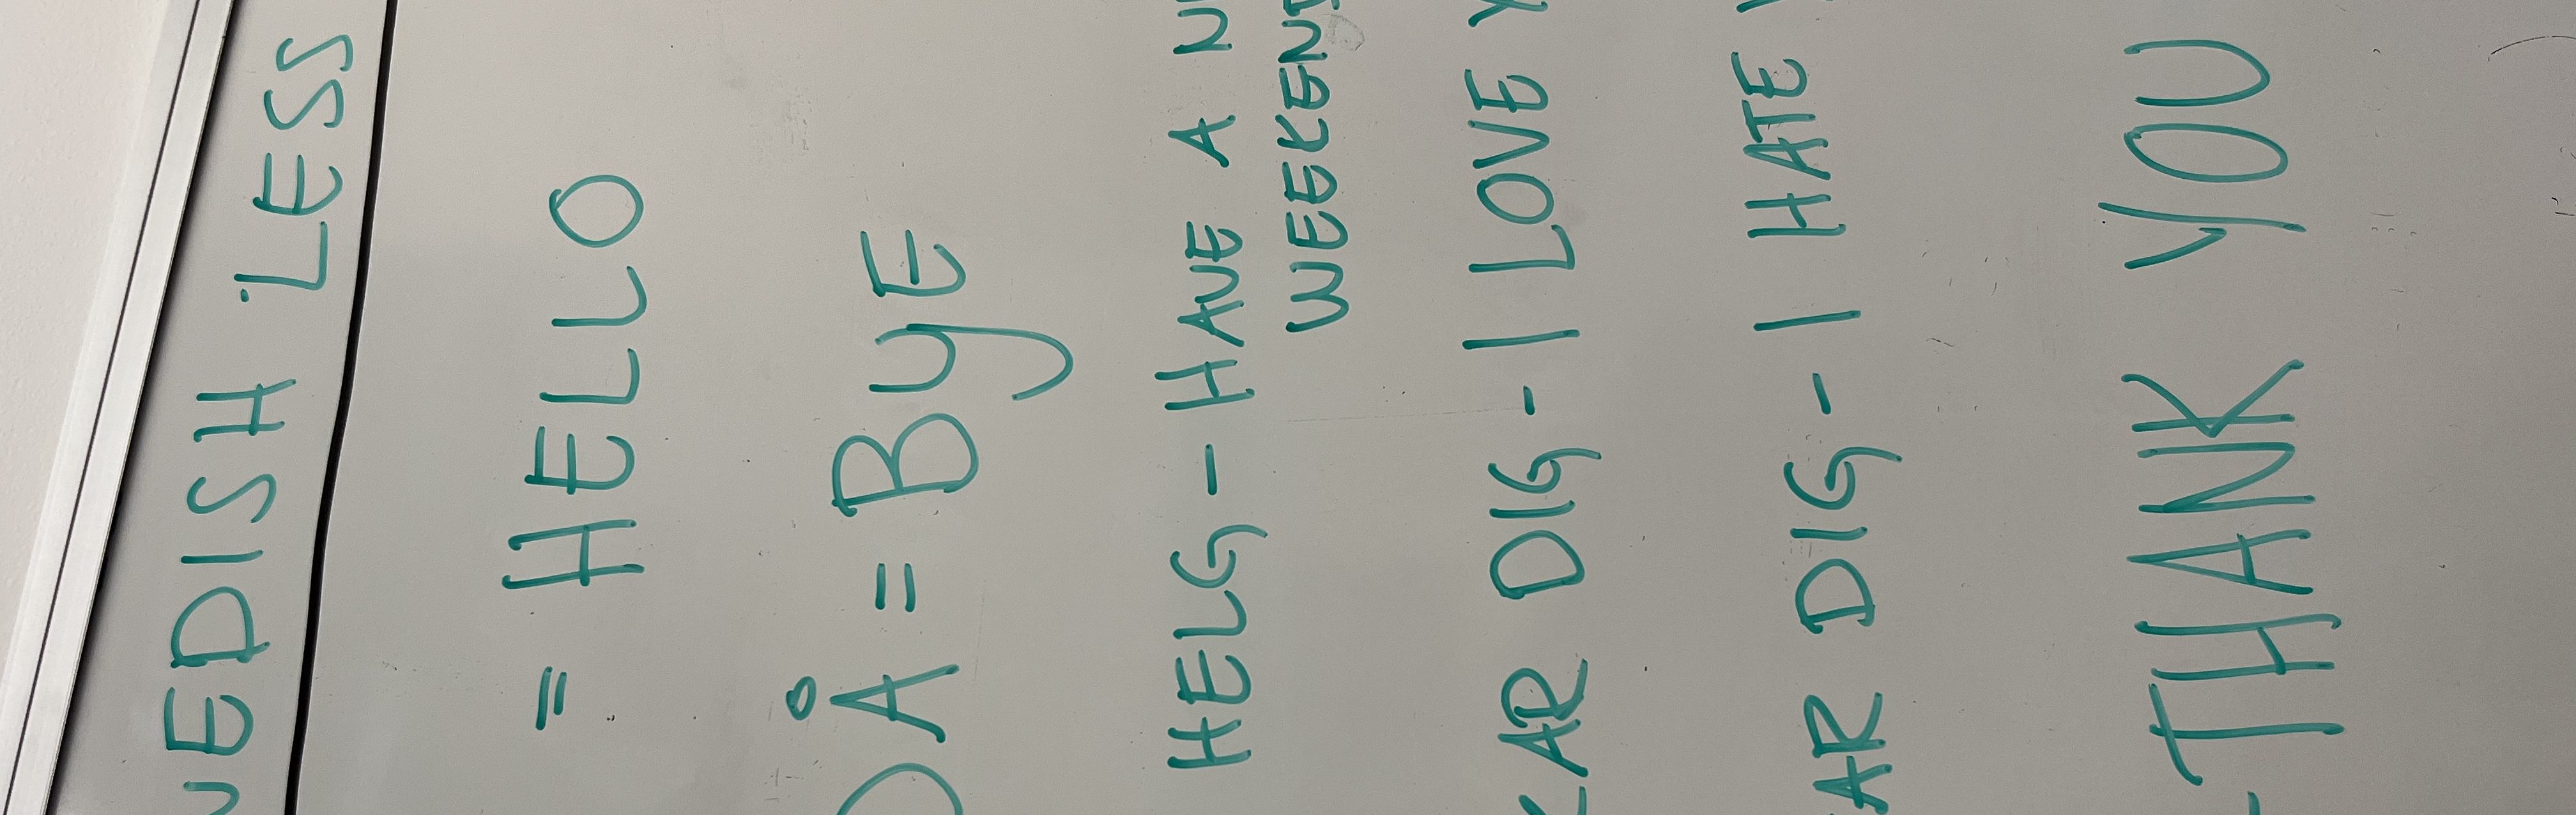 WEDISH LESS
= HELLO
DÅ = BYE
HELG - HAVE A N
WEEKEND
KAR DIG - I LOVE Y
AR DIG - I HATE Y
- THANK YOU